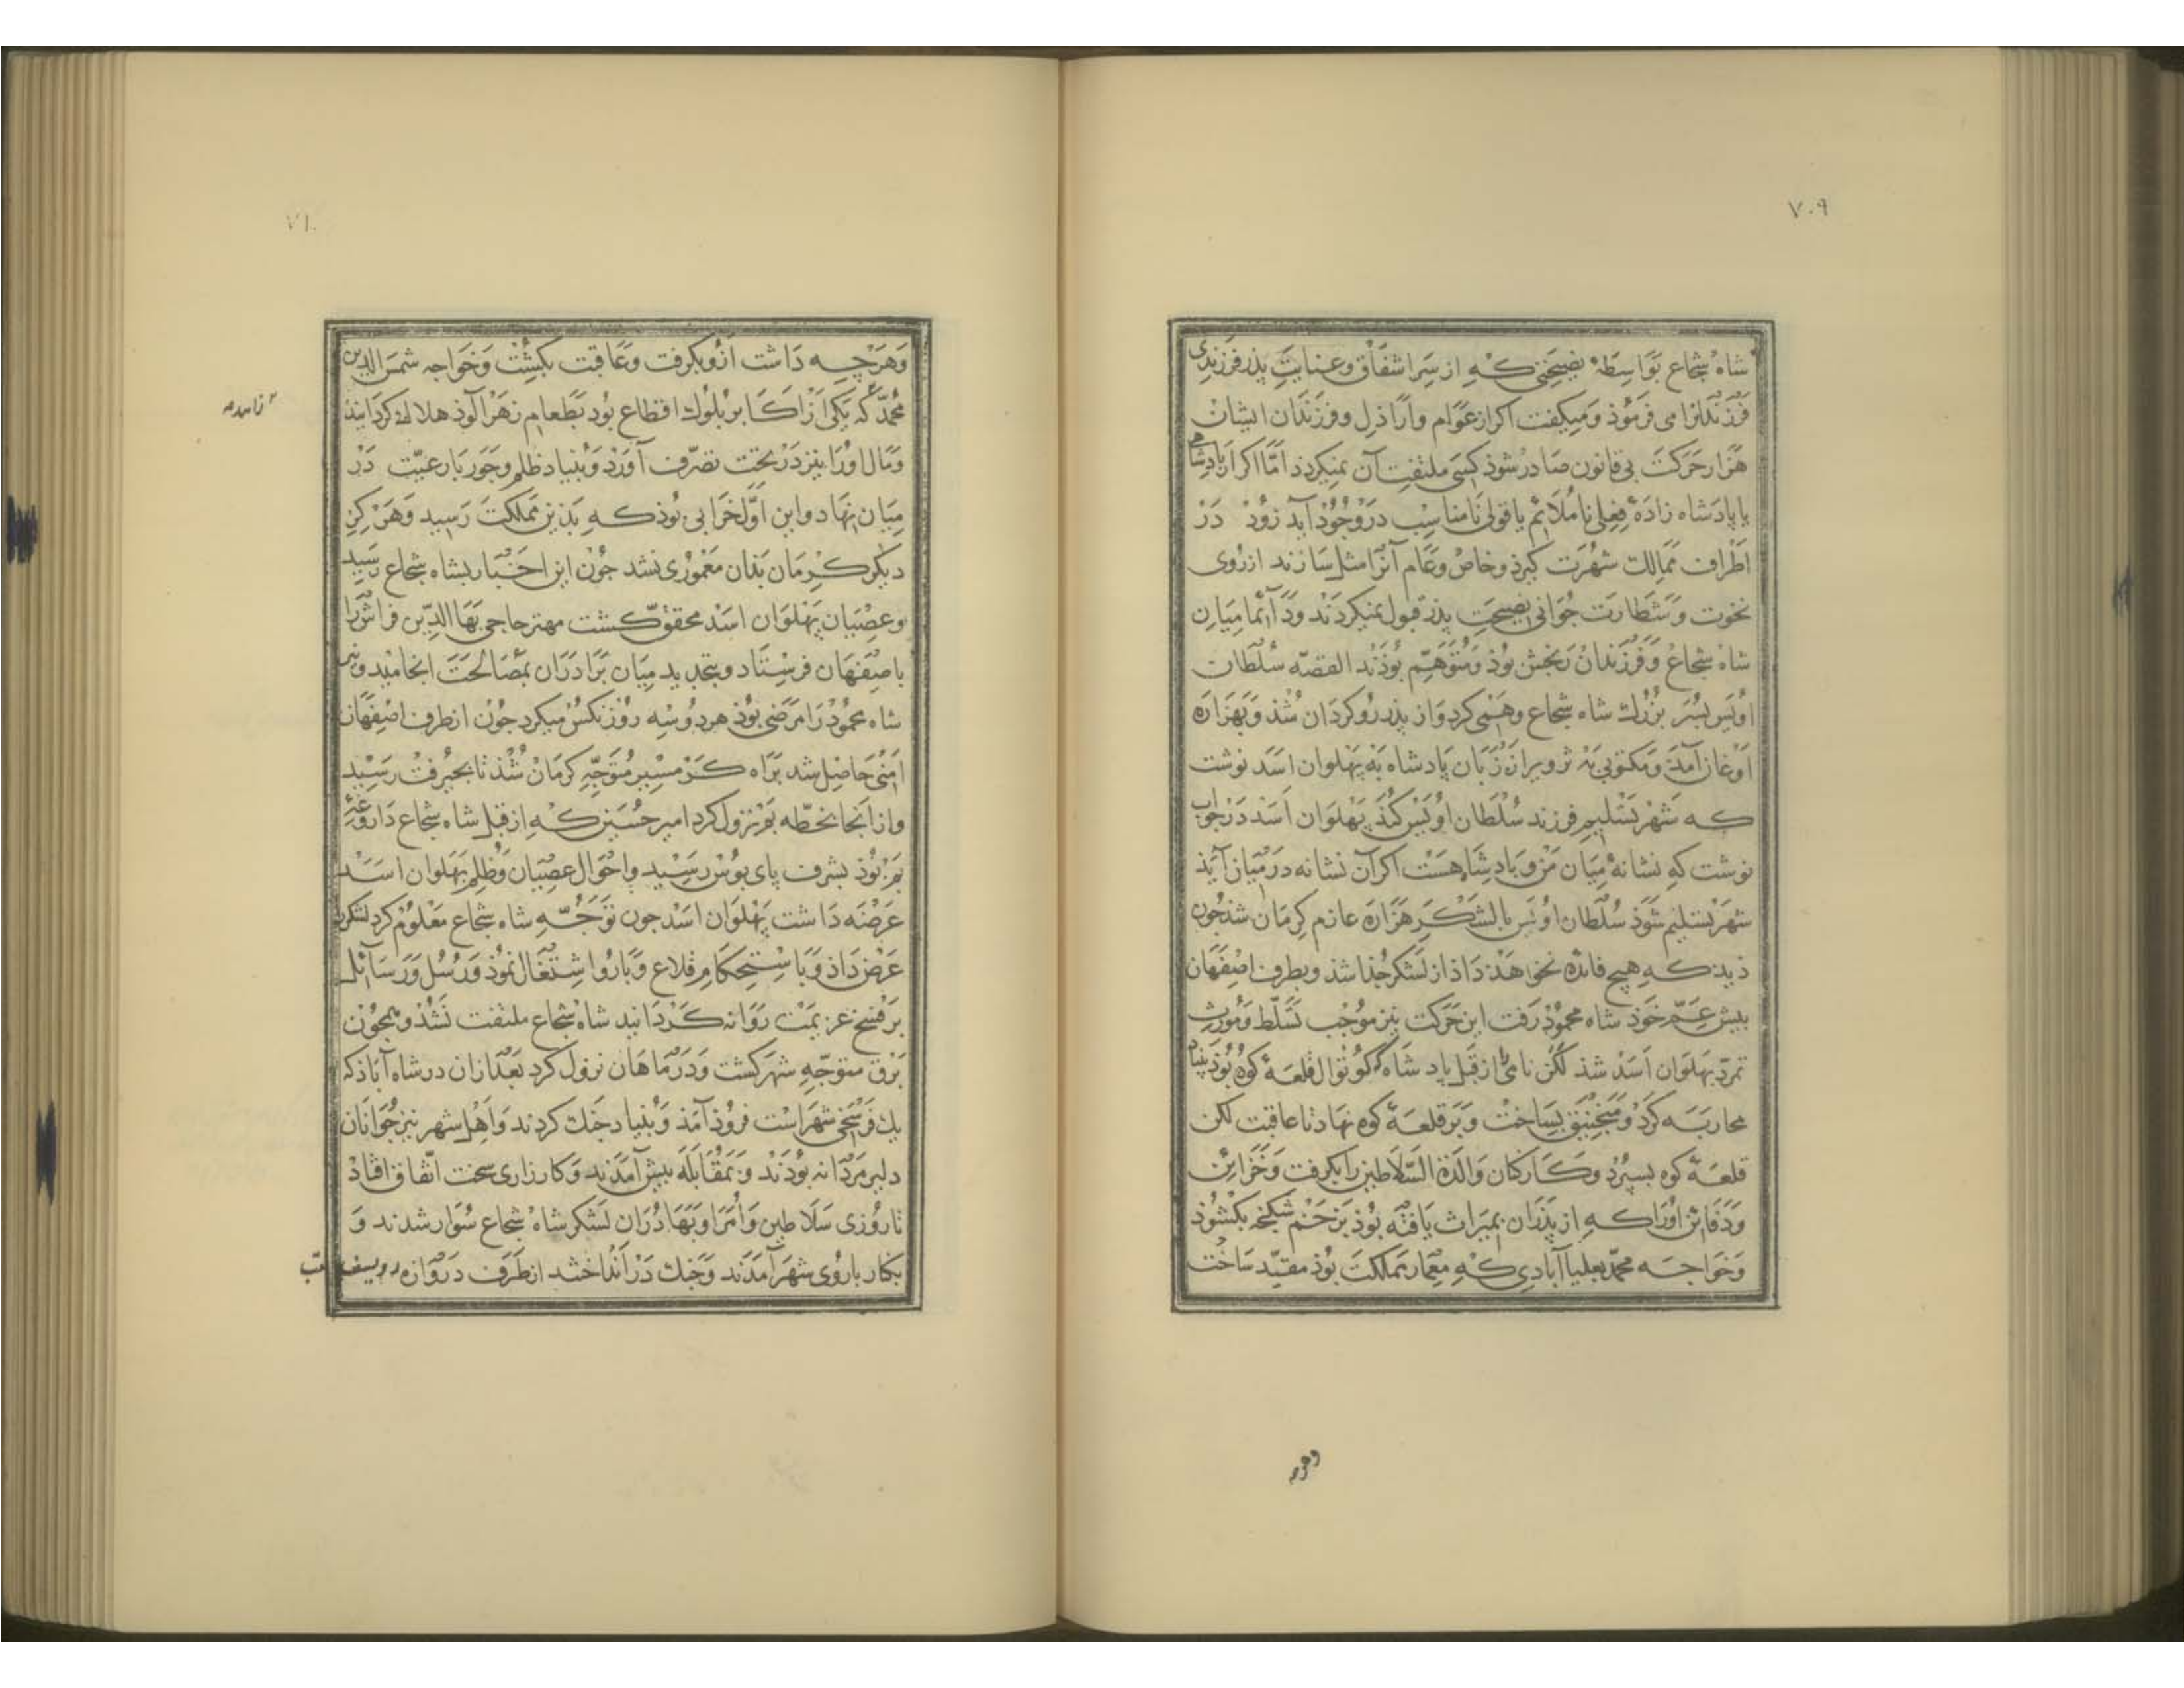 ۷۰۹
شاه شجاع بواسطهٔ نصیحتی که از سر اشفاق و عنایت پذر فرزندی
فرزندانرا می فرموذ و میکفت اکر از عوام و اراذل و فرزندان ایشان
هزار حرکت بی قانون صادر شوذ کسی ملتفت آن نمیکردد امّا اکر از پادشاهی
یا پادشاه زادهٔ فعلی نا ملائم یا قولی نامناسب در وجوذ آید زوذ در
اطراف ممالک شهرت کیرذ و خاص و عام آنرا مثل سازند از روی
نخوت و شطارت جوانی نصیحت پذر قبول نمیکردند و دآئما میان
شاه شجاع و فرزندان رنجش بوذ و متوهّم بوذند القصّه سلطان
اویس پسر بزرک شاه شجاع وهمی کرد و از پذر روکردان شذ و بهزاره
اوغان آمد و مکتوبی به تزویر از زبان پادشاه به پهلوان اسد نوشت
که شهر بتسلیم فرزند سلطان اویس کند پهلوان اسد در جواب
نوشت که نشانهٔ میان من و پادشاه هست اکر آن نشانه در میان آید
شهر بتسلیم شوذ سلطان اویس با لشکر هزاره عازم کرمان شد جون
دید که هیچ فائده نخواهد داذ از لشکر جذا شد و بطرف اصفهان
پیش عمّ خوذ شاه محموذ رفت این حرکت نیز موجب تسلّط و مورث
تمرّد پهلوان اسد شذ لکن نامی از قبل پادشاه کوتوال قلعهٔ کوه بوذ بنیاد
محاربه کرد و منجنیق بساخت و بر قلعهٔ کوه نهاد تا عاقبت لکن
قلعهٔ کوه بسپرد و کارکنان والدة السّلاطین را بکرفت و خزائن
و دفائن اورا که از پذران بمیراث یافته بوذ بزخم شکنجه بکشوذ
و خواجه محمّد بعلیاآبادی که معمار مملکت بوذ مقیّد ساخت
وهرچه
۷۱۰
وهرچه داشت ازو بکرفت و عاقبت بکشت و خواجه شمس الدین
محمّد که یکی از اکابر بلوک اقطاع بود بطعام زهر آلوذ هلاک کردانید
و مال اورا نیز در تحت تصرّف آورد و بنیاد ظلم و جور بارعیّت در
میان نهاد و این اوّل خرابی بوذ که بذین مملکت رسید و هرکز
دیکر کرمان بذان معموری نشد جون این اخبار بشاه شجاع رسید
و عصیان پهلوان اسد محقق کشت مهتر حاجی بهاالدّین فراش را
باصفهان فرستاد و بتجدید میان برادران بمصالحت انجامید و نیز
شاه محموذ را مرضی بوذ هر دو سه روز نکس میکرد جون از طرف اصفهان
امنی حاصل شد براه کرمسیر متوجّه کرمان شذ تا بجیرفت رسید
و از آنجا بخطّه بم نزول کرد امیر حسین که از قبل شاه شجاع داروغهٔ
بم بوذ بشرف پای بوس رسید و احوال عصیان و ظلم پهلوان اسد
عرضه داشت پهلوان اسد جون توجّه شاه شجاع معلوم کرد لشکر
عرض داذ و باستحکام قلاع و بارو اشتغال نموذ و رسل و رسائل
بر فسخ عزیمت روانه کردانید شاه شجاع ملتفت نشد و همجون
برق متوجّه شهر کشت و در ماهان نزول کرد بعد ازان در شاه آباذ که
یک فرسخی شهر است فروذ آمذ و بنیاد جنک کردند و اهل شهر نیز جوانان
دلیر مردانه بوذند و بمقابله پیش آمدند و کارزاری سخت اتّفاق افتاد
تا روزی سلاطین و أمرا و بهادران لشکر شاه شجاع سوار شدند و
بکنار باروی شهر آمدند و جنک در انداختند از طرف دروازه